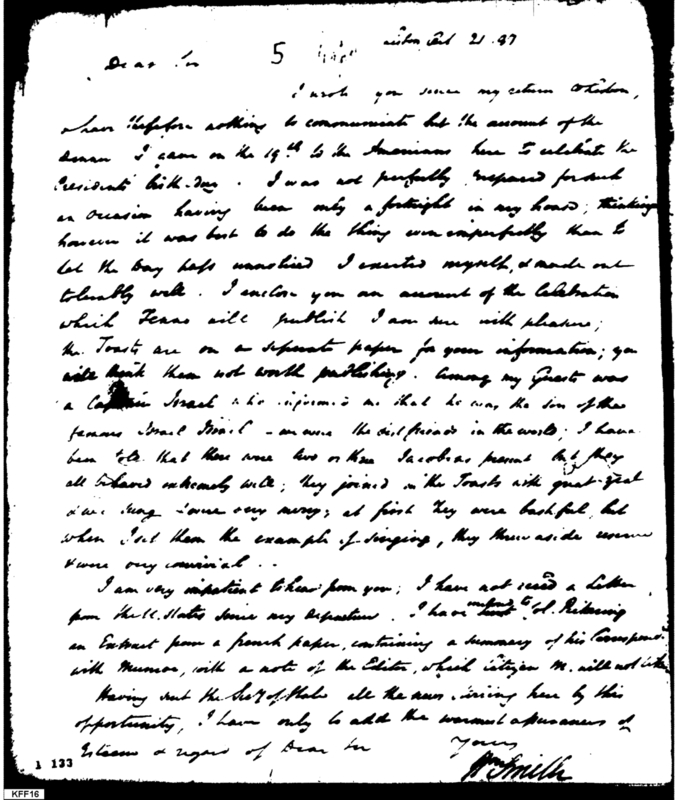 5
Lisbon Feb 21. 97
Dear Sir
I wrote you since my return Whidon,
& have therefore nothing to communicate but the account of the
dinner I gave on the 19th to the Americans here to celebrate the
Presidents birth-day. I was not perfectly prepared for such
an occasion having been only a fortnight in my house; thinking
however it was best to do the thing even imperfectly than to
let the Day pass unnoticed I exerted myself, & made out
tolerably well. I enclose you an account of the Celebration
which Fenno will publish I am sure with pleasure;
the Toasts are on a separate paper for your information; you
will think them not worth publishing. Among my Guests was
a Captain Israel who informed me that he was the son of the
famous Israel Israel - we were the best friends in the world; I have
been told that there were two or three Jacobins present but they
all behaved extremely well; they joined in the Toasts with great zeal
& we sung & were very merry; at first they were bashful, but
when I set them the example of singing, they threw aside reserve
& were very convivial ..
I am very impatient to hear from you; I have not recd a Letter
from the U. States since my departure. I have to Col. Pickering
an Extract from a french paper, containing a summary of his Correspond
with Munroe, with a note of the Editor, which Citizen M. will not like
Having sent the Secy of State all the news stirring here by this
opportunity, I have only to add the warmest assurances of
Esteem & regard of Dear Sir Yours
Wm Smith
1 133
KFF16